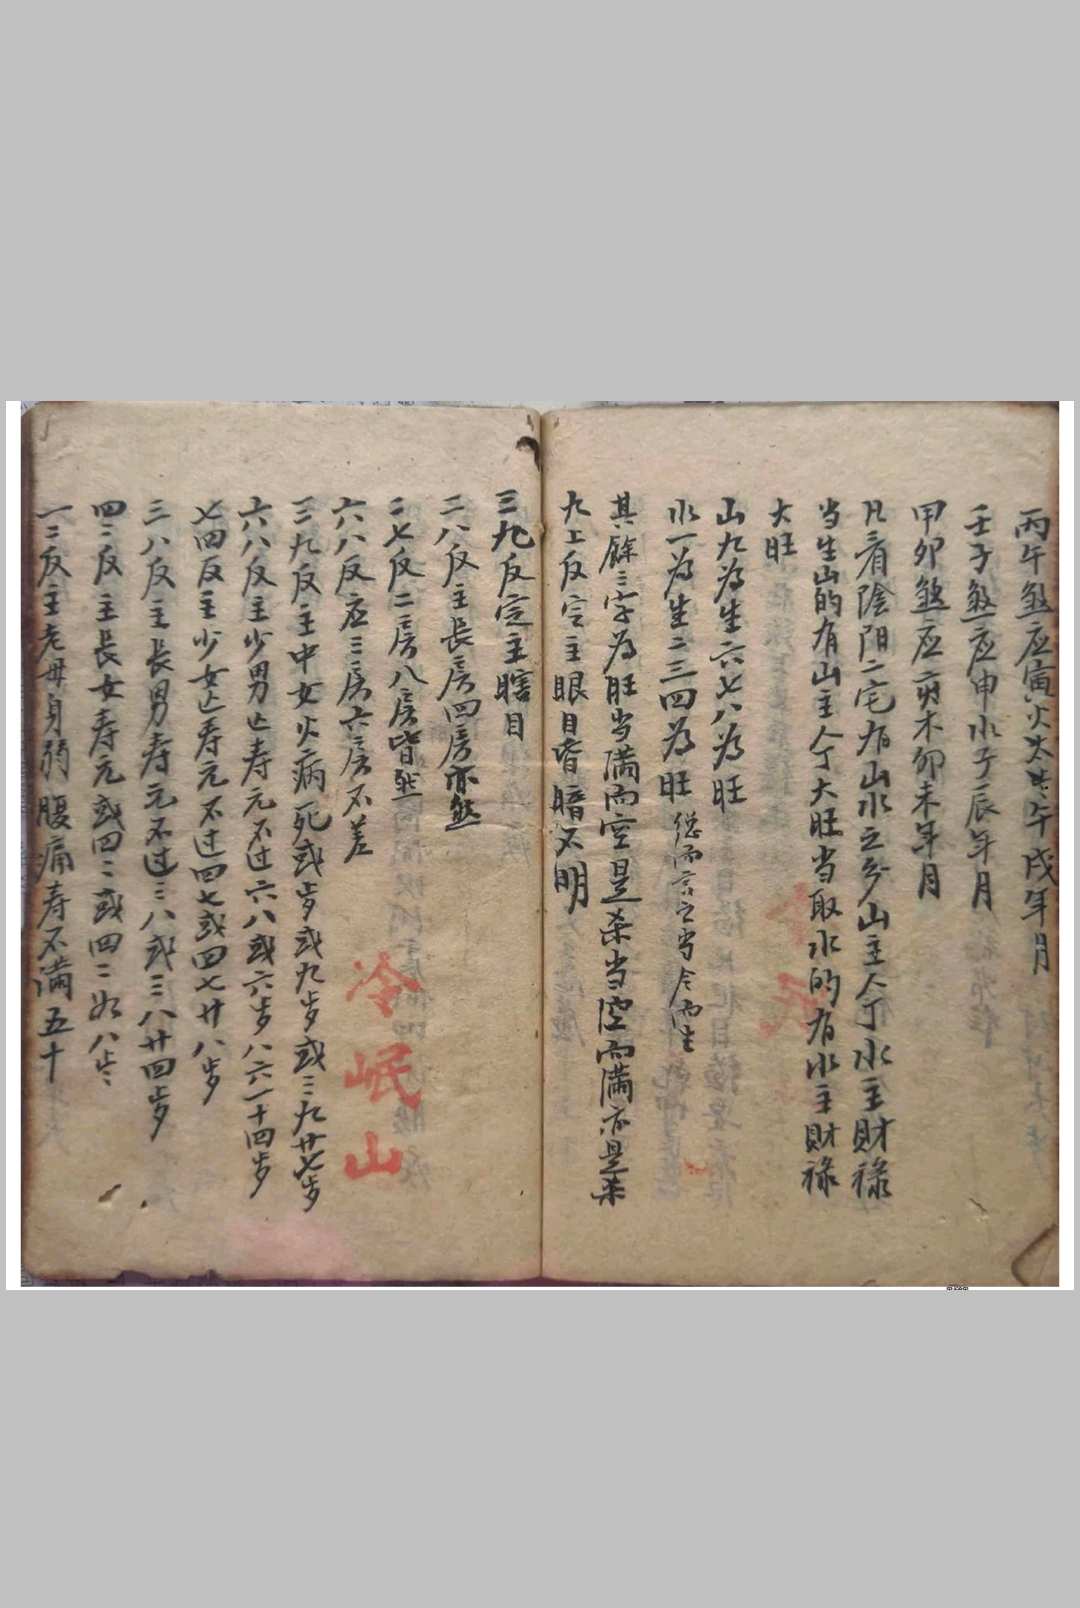 丙午煞应寅火太共午戌年月
壬子煞应申水子辰年月
甲卯煞应亥木卯未年月
凡看陰陽二宅有山水之分山主人丁水主財祿
当生山的有山主人丁大旺当取水的有水主財祿
大旺
山九为生六七八为旺
水一为生二三四为旺 总而言之当令而生
其餘三字为旺当满而空是杀当空而满亦是杀
九上反宫主眼目昏暗不明
三九反定主瞎目
二八反主長房四房亦煞
二七反二房八房皆然
六八反应三房六房不差
三九反主中女火病死或步或九步或三九廿七步
六八反主少男亡寿元不过六八或六步八六一十四步
七四反主少女亡寿元不过四七或四七廿八步
三八反主長男寿元不过三八或三八廿四步
四二反主長女寿元或四二或四二如八步
一二反主老母身弱腹痛寿不满五十
冷
岷
山